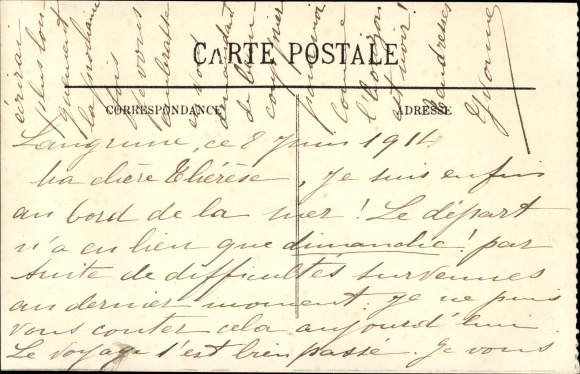 CARTE POSTALE
CORRESPONDANCE
ADRESSE
Langrune, ce 8 Juin 1914
Ma chère Thérèse, je suis enfin
au bord de la mer ! Le départ
n'a eu lieu que dimanche ! par
suite de difficultés survenues
au dernier moment. Je ne puis
vous conter cela aujourd'hui.
Le voyage s'est bien passé. Je vous
écrirai
plus longuement
la prochaine
fois
je vous
embrasse
en vous
demandant
de bien
comme
l'horizon
est noir !
Tendresses
Yvonne